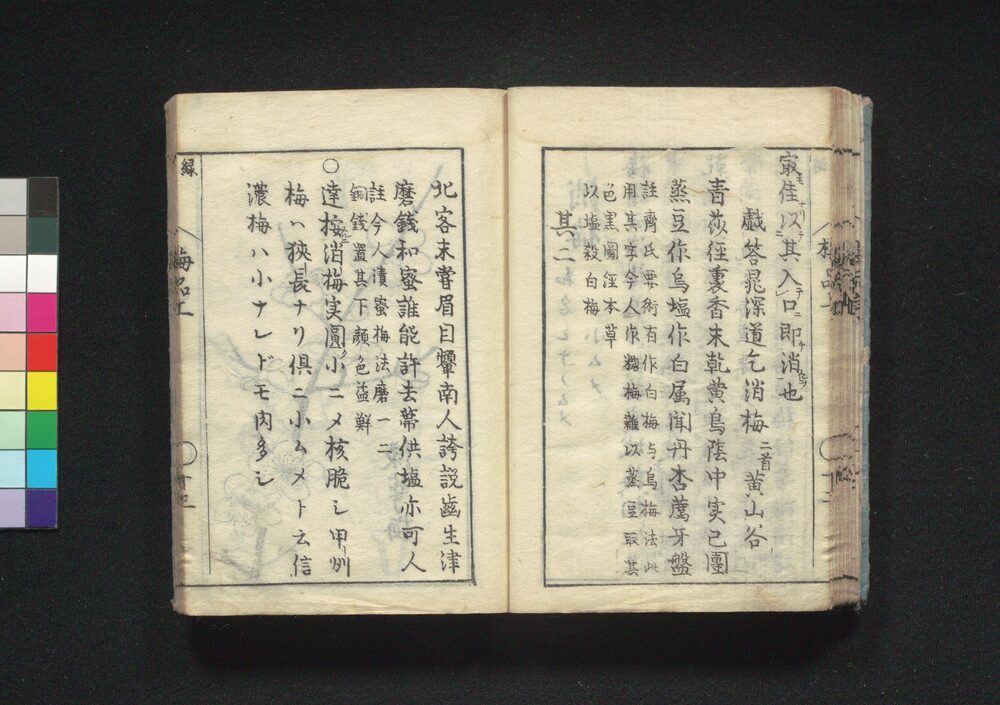 最佳以其入口即消也
戯答晁深道乞消梅 二首 黄山谷
青莎徑裏香未乾黄鳥陰中実已團
蒸豆作烏塩作白属聞丹杏薦牙盤
註齊氏要術有作白梅与烏梅法此
用其字今人作糖梅雜以蒸豆取其
色黒圖經本草
以塩殺白梅
其二
北客未嘗眉自顰南人誇説齒生津
磨錢和蜜誰能許去蔕供塩亦可人
註今人漬蜜梅法磨一二
銅錢置其下顔色益鮮
○達按消梅実圓小ニメ核脆シ甲州
梅ハ狹長ナリ俱ニ小ムメト云信
濃梅ハ小ナレドモ肉多シ
緑
梅品上